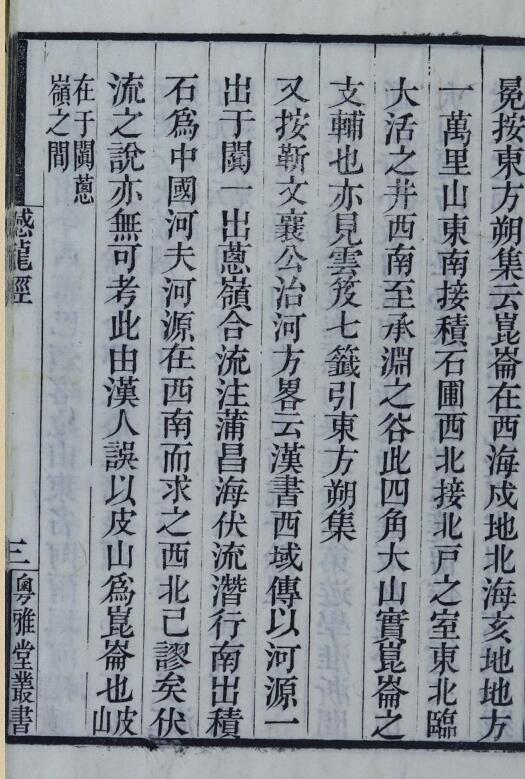 冕按東方朔集云崑崙在西海戍地北海亥地地方
一萬里山東南接積石圃西北接北戸之室東北臨
大活之井西南至承淵之谷此四角大山實崑崙之
支輔也亦見雲笈七籤引東方朔集
又按靳文襄公治河方畧云漢書西域傳以河源一
出于闐一出蔥嶺合流注蒲昌海伏流潛行南出積
石爲中國河夫河源在西南而求之西北已謬矣伏
流之說亦無可考此由漢人誤以皮山爲崑崙也皮山
在于闐蔥
嶺之間
撼龍經
三
粵雅堂叢書